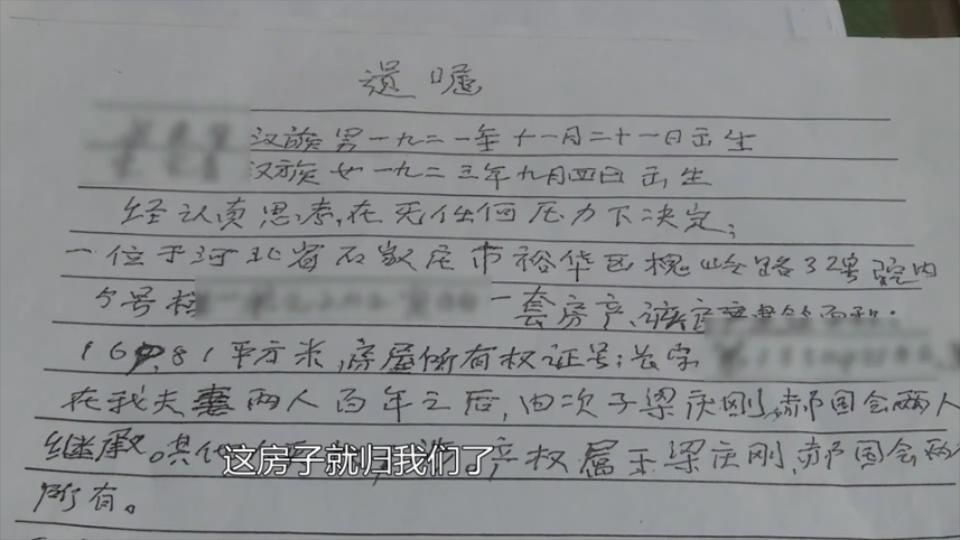 遗嘱
汉族男一九二一年十一月二十一日出生
汉族女一九二三年九月四日出生
经认真思考,在无任何压力下决定;
一位于河北省石家庄市裕华区槐岭路32号院内
5号楼 一套房产,该房产
81平方米,房屋所有权证号:长字
在我夫妻两人百年之后,由次子梁庆刚,郝国会两人
继承。其他 产权属于梁庆刚,郝国会两
所有。
这房子就归我们了